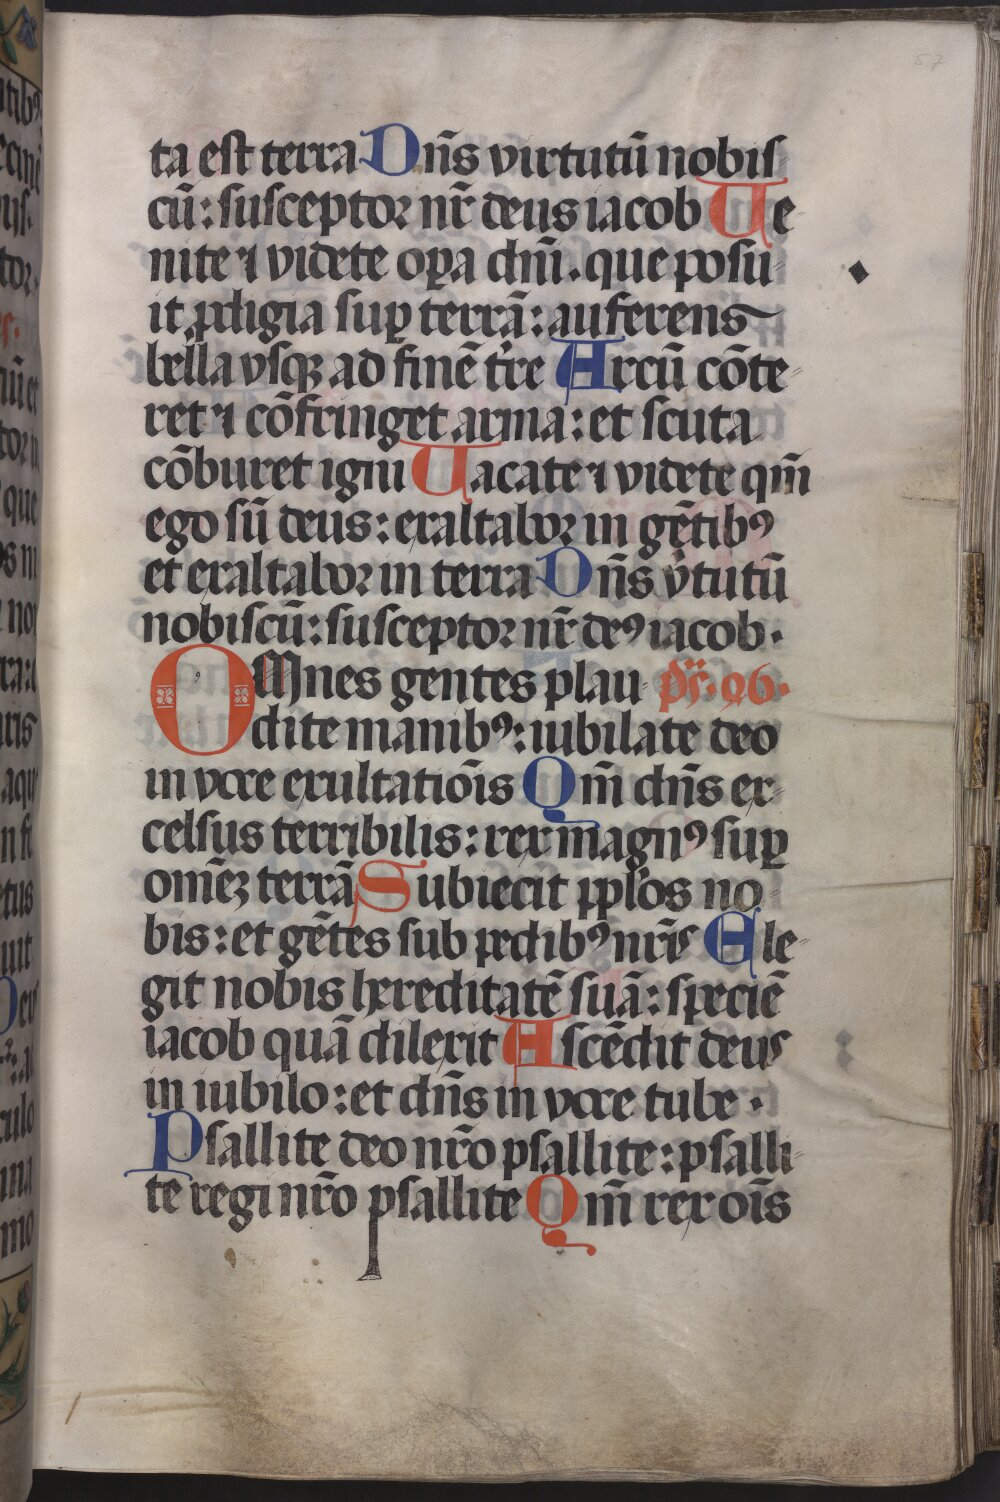 57
ta est terra Dn̄s virtutū nobis
cū: susceptor nr̄ deus iacob Ue
nite ⁊ videte oꝑa dn̄i. que posu
it ꝓdigia suꝑ terrā: auferens
bella vsqꝫ ad finē tr̄e Arcū cōte
ret ⁊ cōfringet arma: et scuta
cōburet igni Uacate ⁊ videte qm̄
ego sū deus: exaltabor in gētibꝰ
et exaltabor in terra Dn̄s v̓tutū
nobiscū: susceptor nr̄ deꝰ iacob.
OMnes gentes plau ps̄. 96.
dite manibꝰ: iubilate deo
in voce exultatiōis Qm̄ dn̄s ex
celsus terribilis: rex magnꝰ suꝑ
omēꝫ terrā Subiecit pplōs no
bis: et gētes sub pedibꝰ nr̄is Ele
git nobis hereditatē suā: speciē
iacob quā dilexit Ascēdit deus
in iubilo: et dn̄s in voce tube.
Psallite deo nr̄o psallite: psalli
te regi nr̄o psallite Qm̄ rex oīs